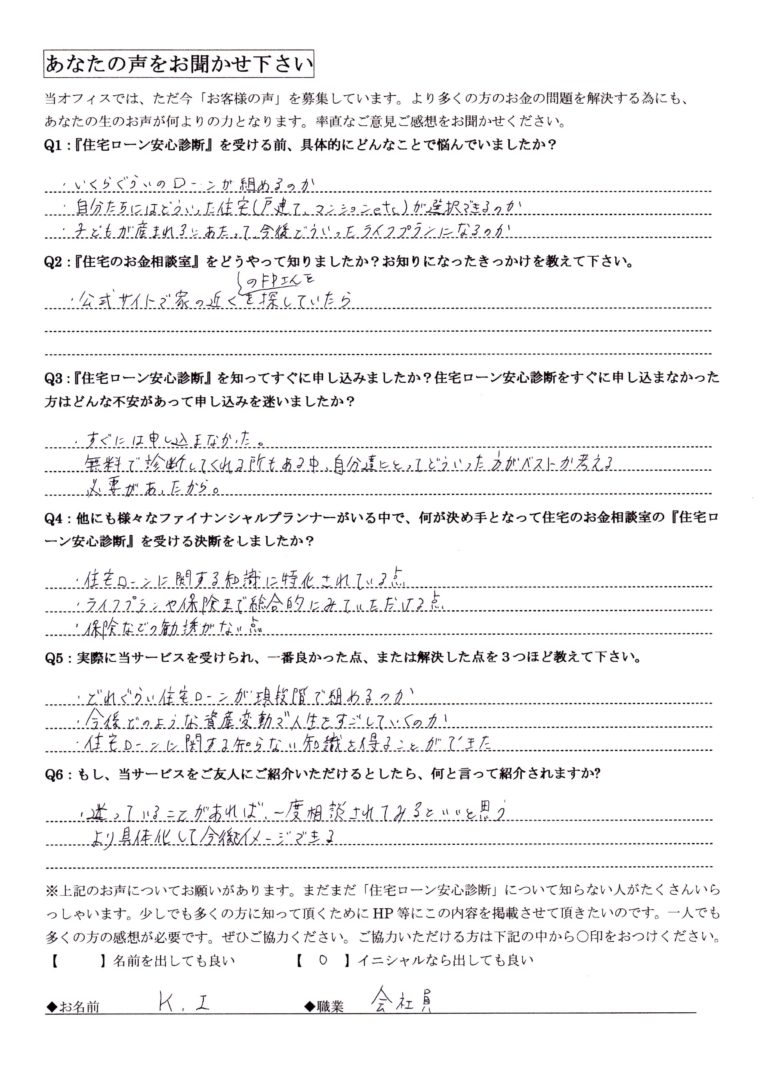 あなたの声をお聞かせ下さい
当オフィスでは、ただ今「お客様の声」を募集しています。より多くの方のお金の問題を解決する為にも、
あなたの生のお声が何よりの力となります。率直なご意見ご感想をお聞かせください。
Q1：『住宅ローン安心診断』を受ける前、具体的にどんなことで悩んでいましたか？
・いくらぐらいのローンが組めるのか
・自分たちにはどういった住宅(戸建て、マンションetc)が選択できるのか
・子どもが産まれるにあたって、今後どういったライフプランになるのか
Q2：『住宅のお金相談室』をどうやって知りましたか？お知りになったきっかけを教えて下さい。
のFPさんを
・公式サイトで家の近くを探していたら
Q3：『住宅ローン安心診断』を知ってすぐに申し込みましたか？住宅ローン安心診断をすぐに申し込まなかった
方はどんな不安があって申し込みを迷いましたか？
・すぐには申し込まなかった。
無料で診断してくれる所もある中、自分達にとってどういった方がベストか考える
必要があったから。
Q4：他にも様々なファイナンシャルプランナーがいる中で、何が決め手となって住宅のお金相談室の『住宅ロ
ーン安心診断』を受ける決断をしましたか？
・住宅ローンに関する知識に特化されている点、
・ライフプランや保険まで総合的にみていただける点、
・保険などの勧誘がない点。
Q5：実際に当サービスを受けられ、一番良かった点、または解決した点を３つほど教えて下さい。
・どれぐらい住宅ローンが現段階で組めるのか
・今後どのような資産変動で人生をすごしていくのか
・住宅ローンに関する知らない知識を得ることができた
Q6：もし、当サービスをご友人にご紹介いただけるとしたら、何と言って紹介されますか?
・迷っていることがあれば、一度相談されてみるといいと思う
より具体化して今後イメージできる
※上記のお声についてお願いがあります。まだまだ「住宅ローン安心診断」について知らない人がたくさんいら
っしゃいます。少しでも多くの方に知って頂くために HP 等にこの内容を掲載させて頂きたいのです。一人でも
多くの方の感想が必要です。ぜひご協力ください。ご協力いただける方は下記の中から〇印をおつけください。
【　　】名前を出しても良い　　【 〇 】イニシャルなら出しても良い
◆お名前 K. I ◆職業 会社員